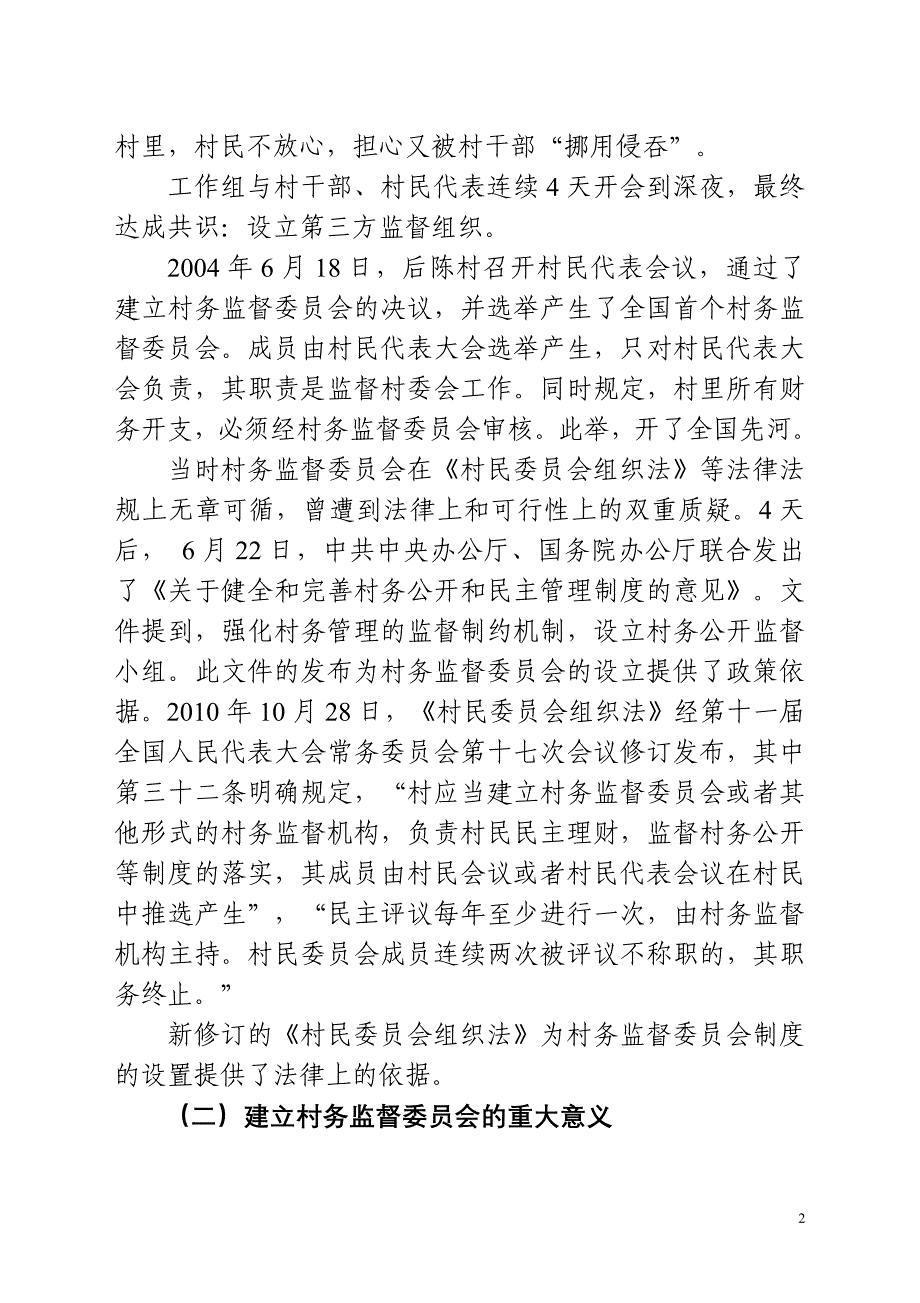 村里，村民不放心，担心又被村干部“挪用侵吞”。
工作组与村干部、村民代表连续 4 天开会到深夜，最终
达成共识：设立第三方监督组织。
2004 年 6 月 18 日，后陈村召开村民代表会议，通过了
建立村务监督委员会的决议，并选举产生了全国首个村务监
督委员会。成员由村民代表大会选举产生，只对村民代表大
会负责，其职责是监督村委会工作。同时规定，村里所有财
务开支，必须经村务监督委员会审核。此举，开了全国先河。
当时村务监督委员会在《村民委员会组织法》等法律法
规上无章可循，曾遭到法律上和可行性上的双重质疑。4 天
后， 6 月 22 日，中共中央办公厅、国务院办公厅联合发出
了《关于健全和完善村务公开和民主管理制度的意见》。文
件提到，强化村务管理的监督制约机制，设立村务公开监督
小组。此文件的发布为村务监督委员会的设立提供了政策依
据。2010 年 10 月 28 日，《村民委员会组织法》经第十一届
全国人民代表大会常务委员会第十七次会议修订发布，其中
第三十二条明确规定，“村应当建立村务监督委员会或者其
他形式的村务监督机构，负责村民民主理财，监督村务公开
等制度的落实，其成员由村民会议或者村民代表会议在村民
中推选产生”，“民主评议每年至少进行一次，由村务监督
机构主持。村民委员会成员连续两次被评议不称职的，其职
务终止。”
新修订的《村民委员会组织法》为村务监督委员会制度
的设置提供了法律上的依据。
（二）建立村务监督委员会的重大意义
2